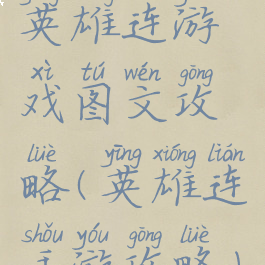 英雄连游
xì tú wén gōng
戏图文攻
lüè yīng xióng lián
略(英雄连
shǒu yóu gōng lüè
手游攻略)